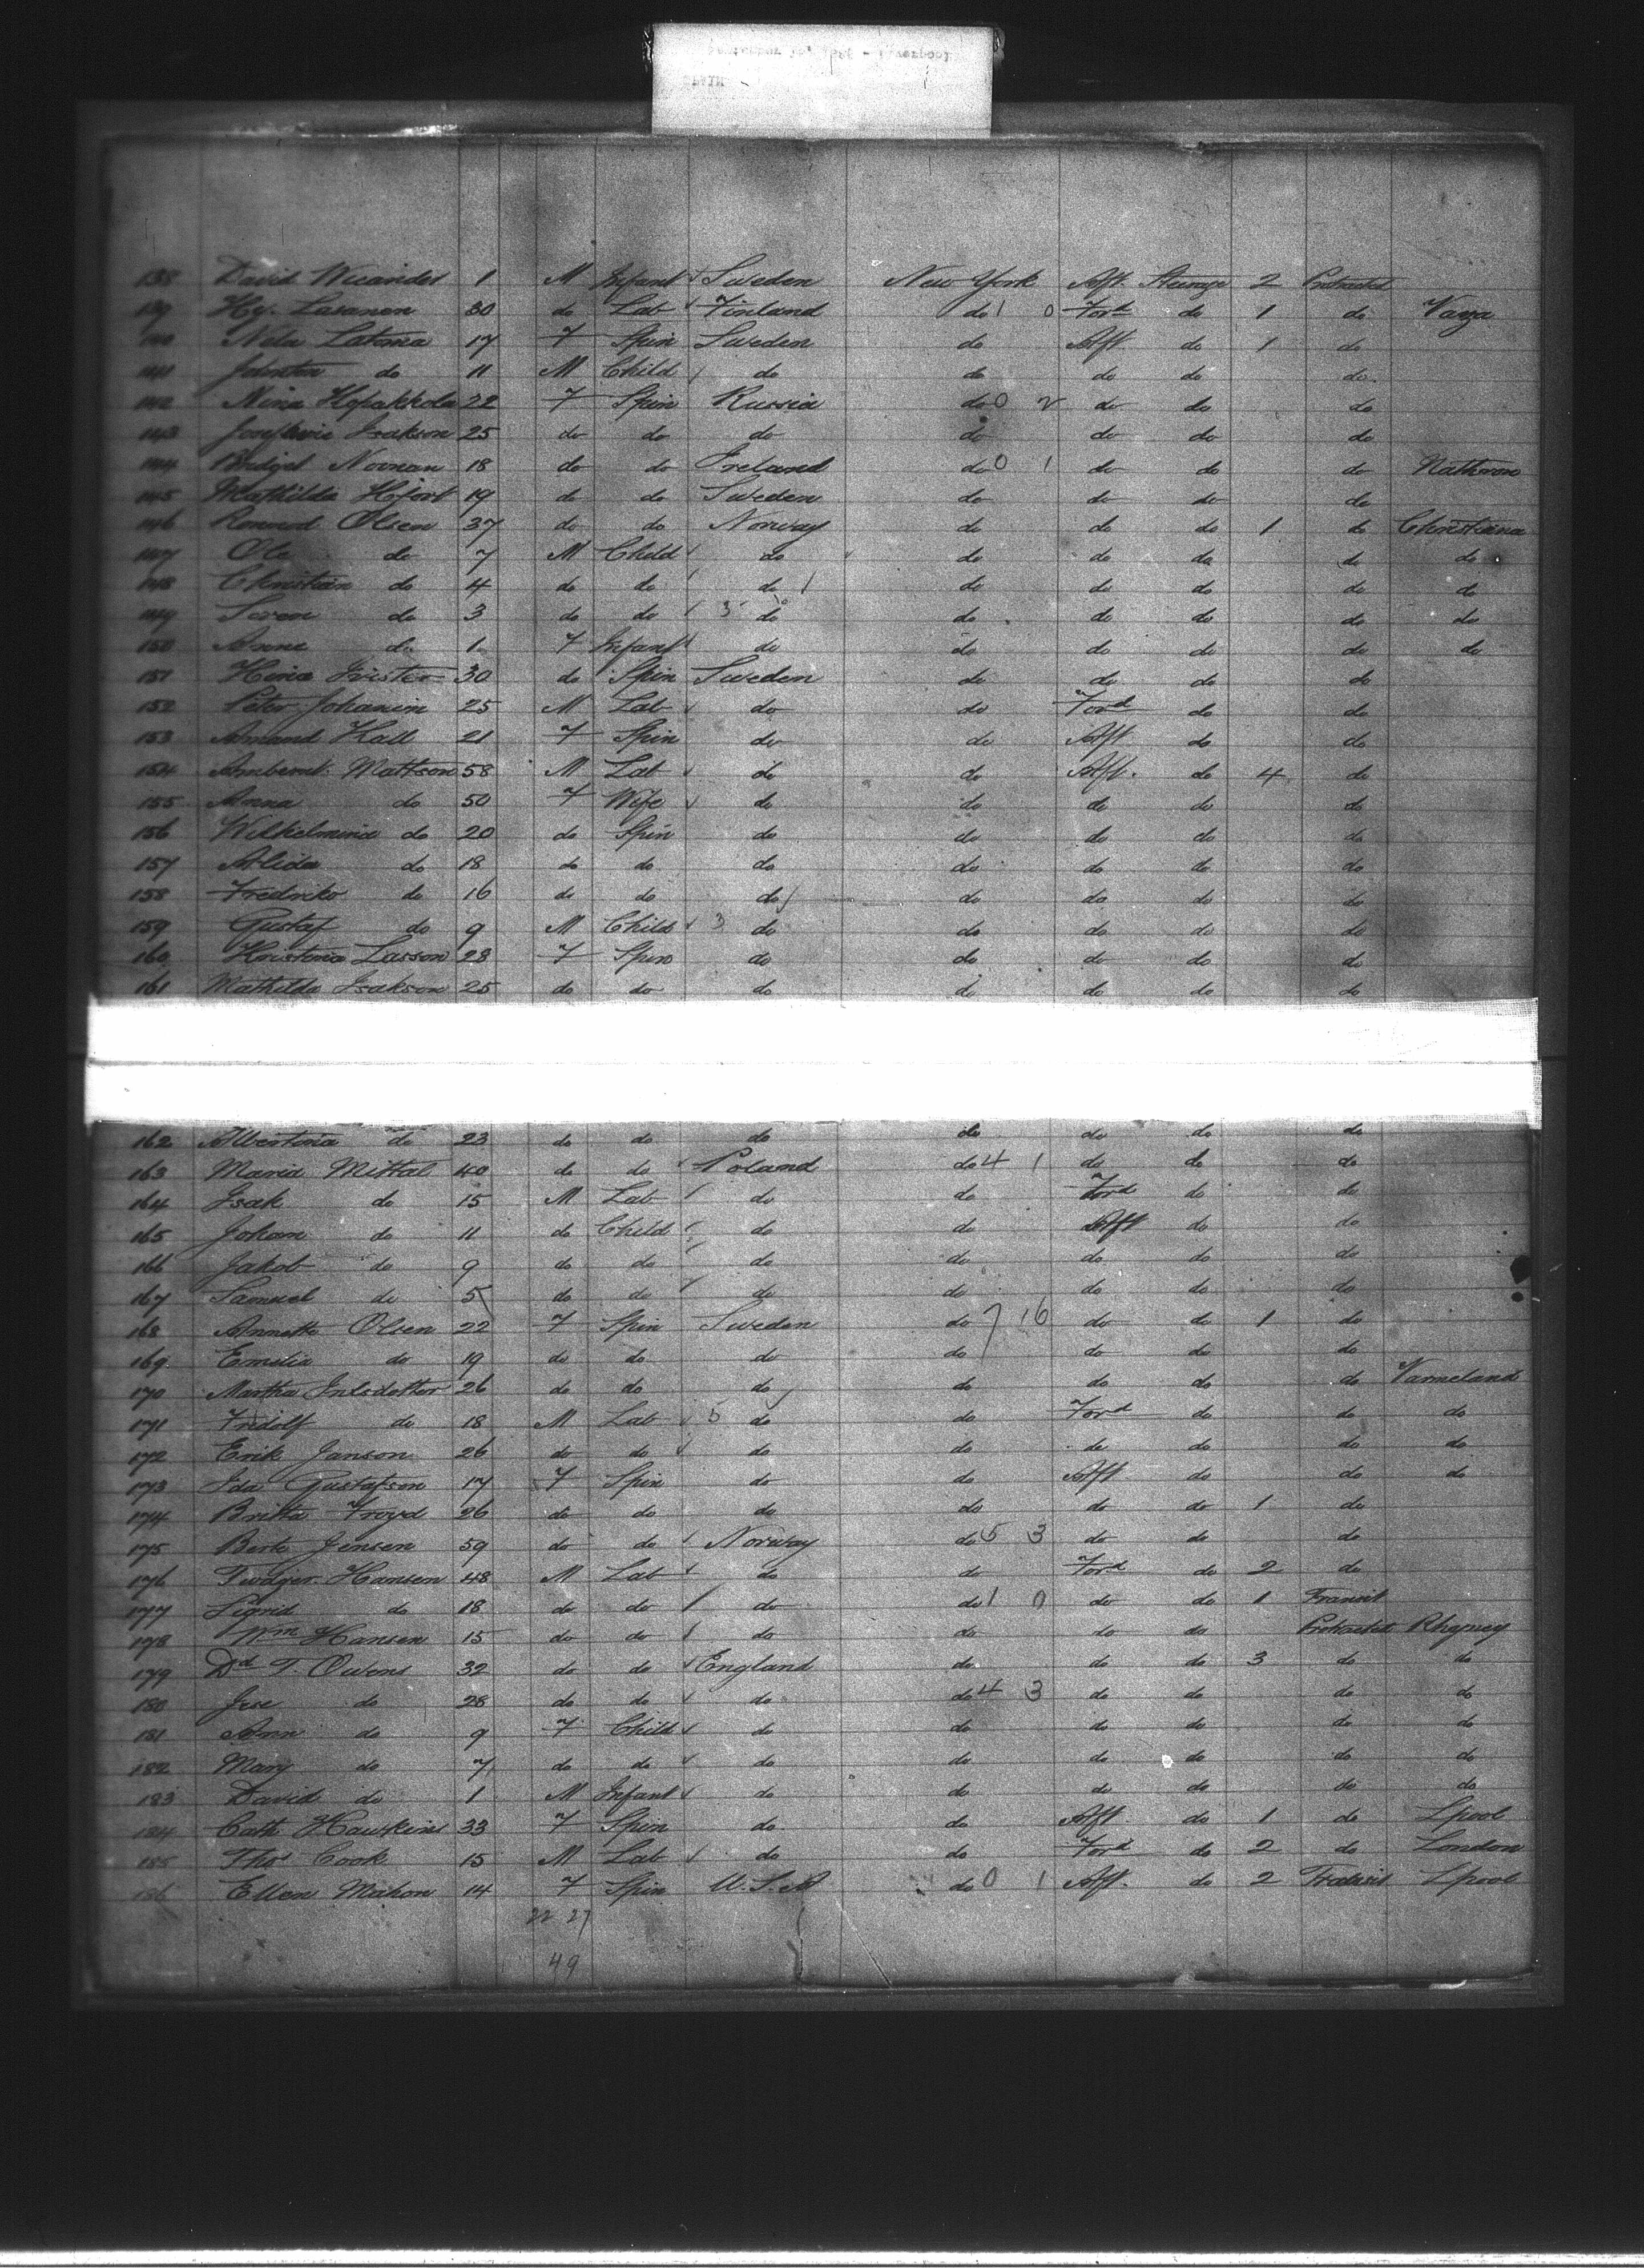 138 David Wicander 1 M Infant Sweden New York Aft. Steerage 2 Protracted
139 Hy. Lasanen 30 do Lab Finland do 1 0 Ford do 1 do Vaza
140 Nela Latoma 17 F Spin Sweden do Aft do 1 do
141 do 11 M Child do do do do do
142 Mina 22 F Spin Russia do 0 2 do do do
143 Josephine Isakson 25 do do do do do do do
144 Bridget Noonan 18 do do Ireland do 0 1 do do do
145 Mathilda Hjort 19 do do Sweden do do do do
146 Olsen 37 do do Norway do do do 1 do Christiana
147 Ole do 7 M Child do do do do do do
148 Christian do 4 do do do do do do do do
149 Seven do 3 do do 3 do do do do do do
150 Anne do 1 F Infant do do do do do do
151 30 do Spin Sweden do do do do
152 Peter Johanin 25 M Lab do do Ford do do
153 Amand Hall 21 F Spin do do Aft do do
154 Mattson 58 M Lab do do Aft. do 4 do
155 Anna do 50 F Wife do do do do do
156 Wilhelmina do 20 do Spin do do do do do
157 Alida do 18 do do do do do do do
158 Fredricko do 16 do do do do do do do
159 Gustaf do 9 M Child 3 do do do do do
160 Kristina Lasson 28 F Spin do do do do do
161 Mathilda Isakson 25 do do do do do do do
162 Albertina do 23 do do do do do do do
163 Maria Mittal 40 do do Poland do 4 1 do do do
164 Isak do 15 M Lab do do Ford do do
165 Johan do 11 do Child do do Aft do do
166 Jakob do 9 do do do do do do do
167 Samuel do 5 do do do do do do do
168 Annette Olsen 22 F Spin Sweden do 7 16 do do 1 do
169 Emilia do 19 do do do do do do do
170 Martha 26 do do do do do do do Varmeland
171 Fridolf do 18 M Lab 5 do do Ford do do do
172 Erik Janson 26 do do do do do do do do
173 Ida Gustafson 17 F Spin do do Aft do do do
174 Britta Froyd 26 do do do do do do 1 do
175 Berte Jensen 59 do do Norway do 5 3 do do do
176 Hansen 48 M Lab do do Ford do 2 do
177 Sigrid do 18 do do do do 1 0 do do 1 Transit
178 Wm Hansen 15 do do do do do do Protracted Rhymney
179 Dd T. Owens 32 do do England do do do 3 do do
180 do 28 do do do do 4 3 do do do do
181 Ann do 9 F Child do do do do do do
182 Mary do 7 do do do do do do do do
183 David do 1 M Infant do do do do do do
184 Cath Hawkins 33 F Spin do do Aft do 1 do Lpool
185 Thos Cook 15 M Lab do do Ford do 2 do London
186 Ellen Mahon 14 F Spin U.S.A do 0 1 Aft. do 2 Lpool
22 27
49